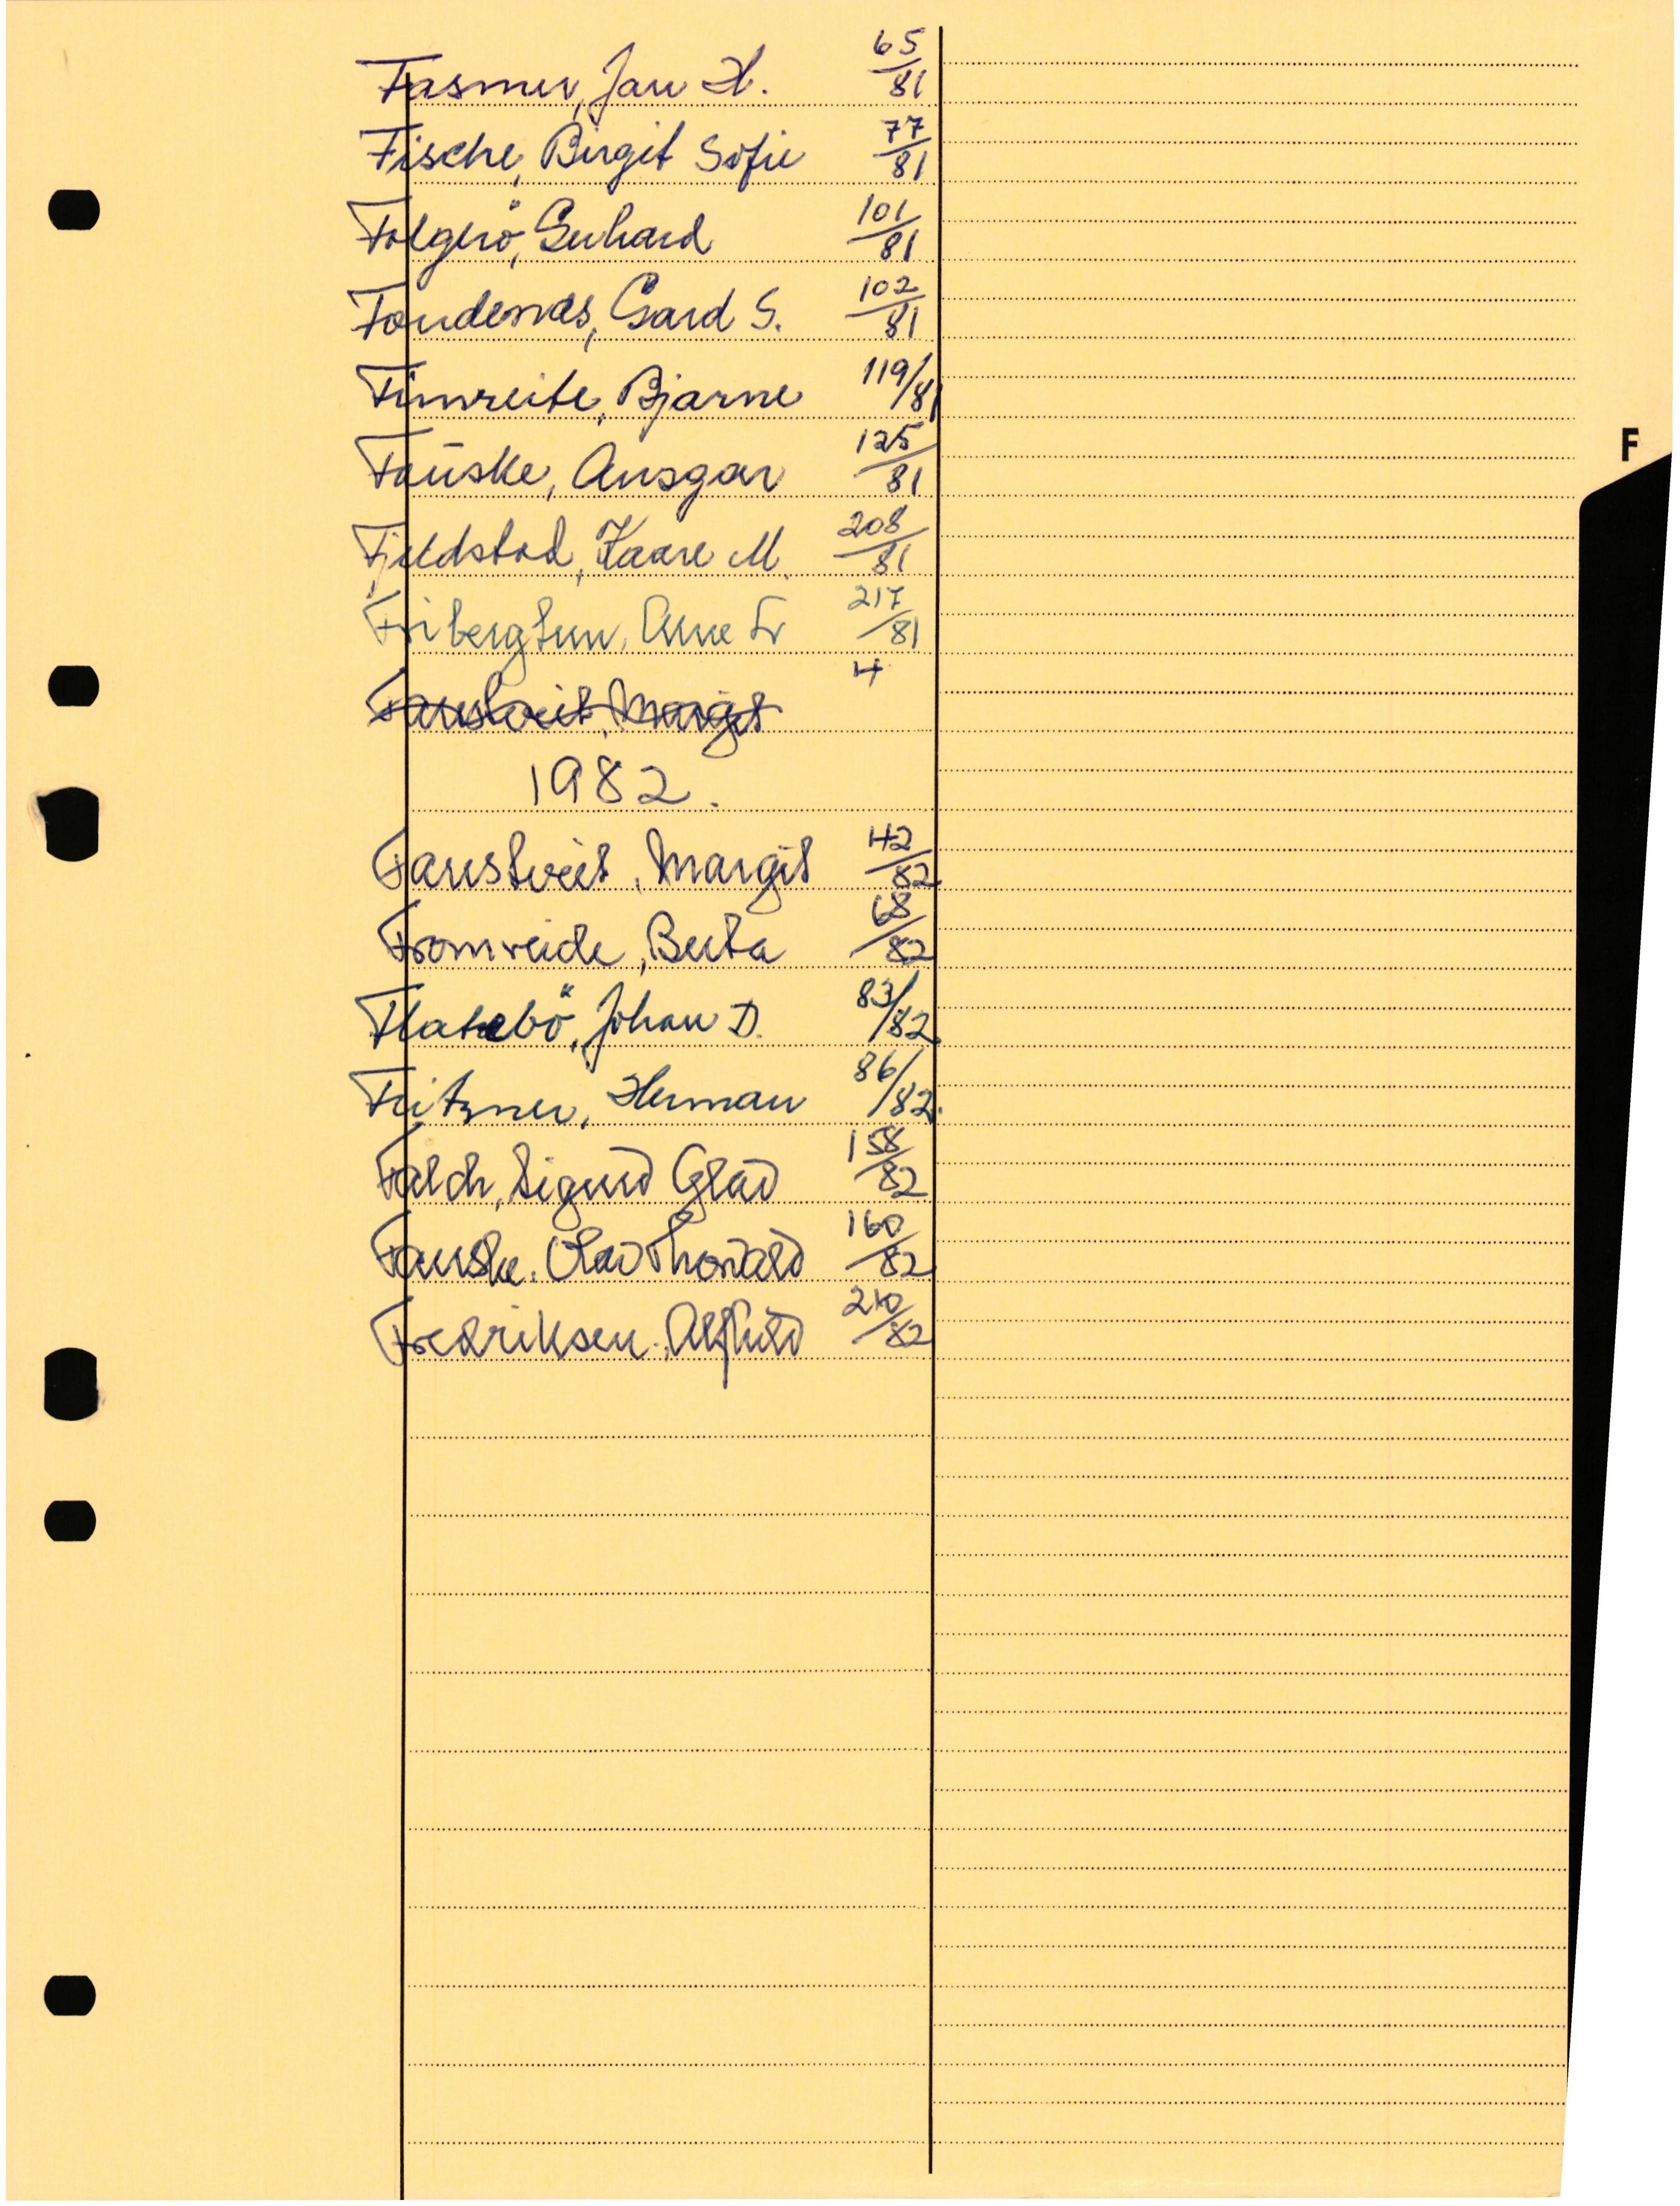 Fasmer, Jan H. 65/81
Fische, Birgit Sofie 77/81
Folgerö, Gerhard 101/81
Fondenæs, Gard S. 102/81
Fimreite, Bjarne 119/81
Fauske, Ansgar 125/81
Fjeldstad, Kaare M. 208/81
F
Fribergtun, Arne Fr 217/81
Faustveit, Margit 4
1982.
Faustveit, Margit 42/82
Fromreide, Berta 68/82
Flatebö, Johan D. 83/82
Fritzner, Herman 86/82.
Falch, Sigurd Glad 158/82
Fauske, Olav Thorvald 160/82
Fredriksen, Alfhild 210/82